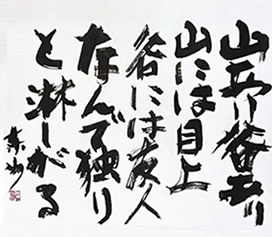 山あり谷あり
山には目上
谷には友人
なんで独り
と淋しがる